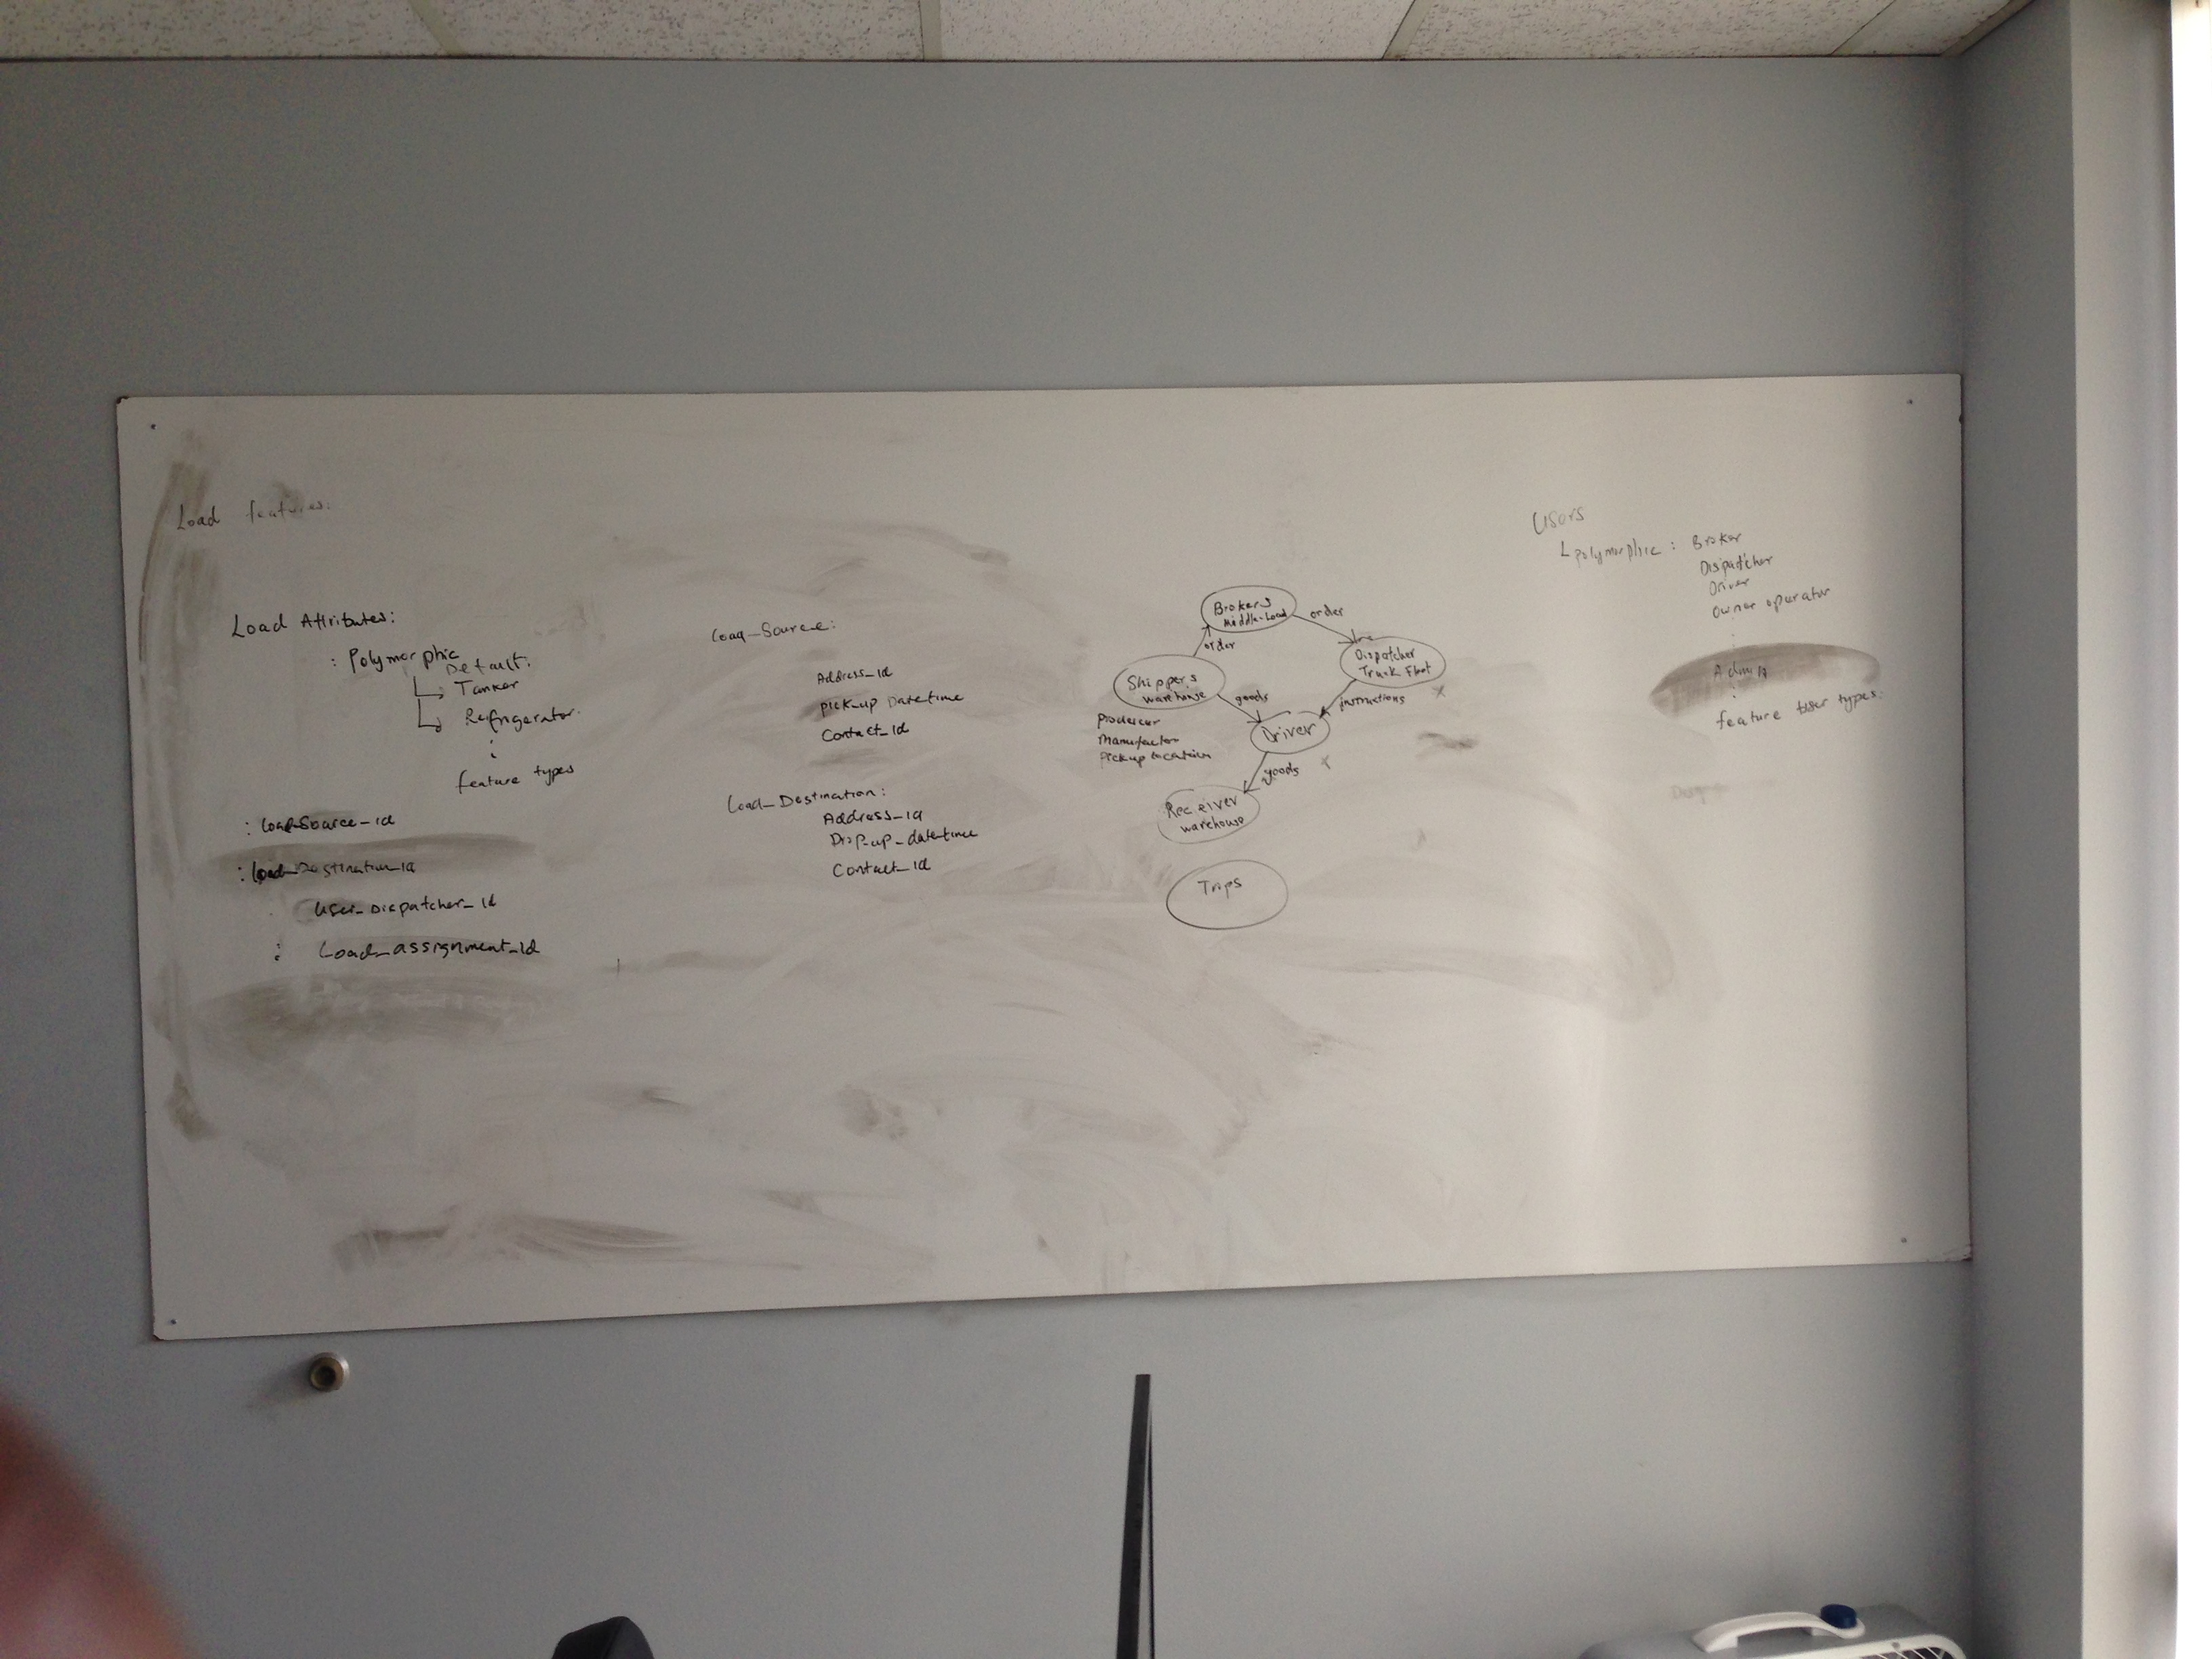 Load features:
Load Attributes:
: Polymorphic
Default.
Tanker
Refrigerator.
feature types
: Load_Source_id
: Load_Destination_id
User_Dispatcher_id
: Load_assignment_id
Load_Source:
Address_id
pick-up Datetime
Contact_id
Load_Destination:
Address_id
Drop-up_datetime
Contact_id
Brokers
Middle-Load
order
order
Dispatcher
Truck Fleet
Shippers
warehouse
goods
instructions
Producer
Manufactor
Pickup location
Driver
goods
Receiver
warehouse
Trips
Users
polymorphic : Broker
Dispatcher
Driver
Owner operator
Admin
feature user types.